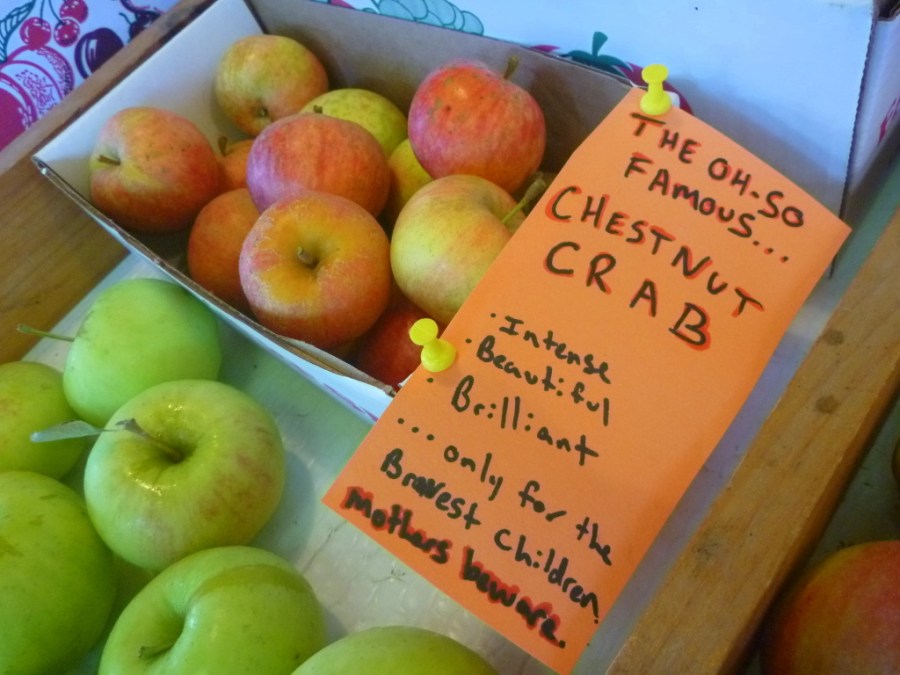 THE OH-SO
FAMOUS...
CHESTNUT
CRAB
· Intense
· Beautiful
· Brilliant
... only for the
Bravest Children.
Mothers beware.